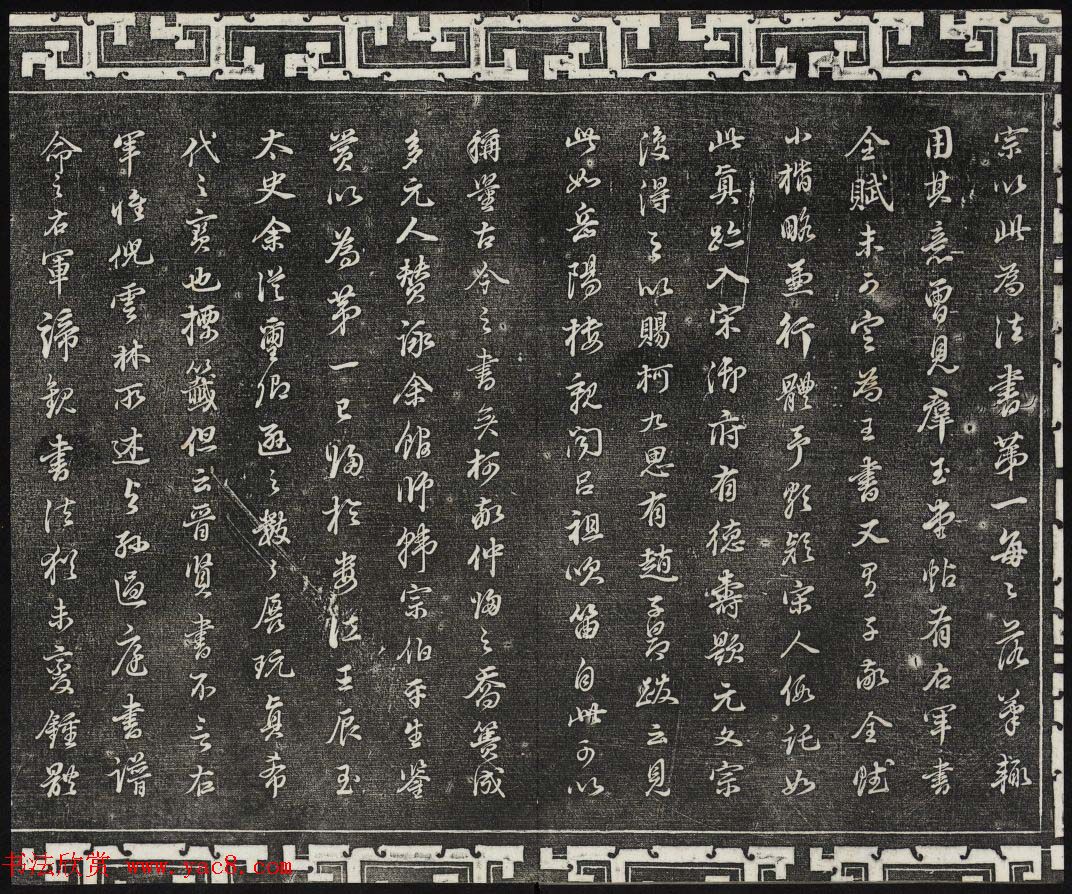 宗以此為法書第一每々落筆輒
用其意曾見群玉堂帖有右軍書
全賦未可定為王書又有子敬全賦
小楷略兼行體予頗疑宋人偽託如
此真跡入宋御府有德壽題元文宗
後得之以賜柯九思有趙子昂跋云見
此如岳陽樓親聞呂祖吹笛自此可以
稱量古今之書矣柯敬仲歸之喬簣成
多元人贊詠余館師韓宗伯平生鑒
賞以為第一已歸於婁江王辰玉
太史余從璽卿遜之數々展玩真希
代之寶也標籤但云晉賢書不言右
軍惟倪雲林所述與孫過庭書譜
命之右軍諦觀書法猶未變鍾體
书法欣赏 www.yac8.com